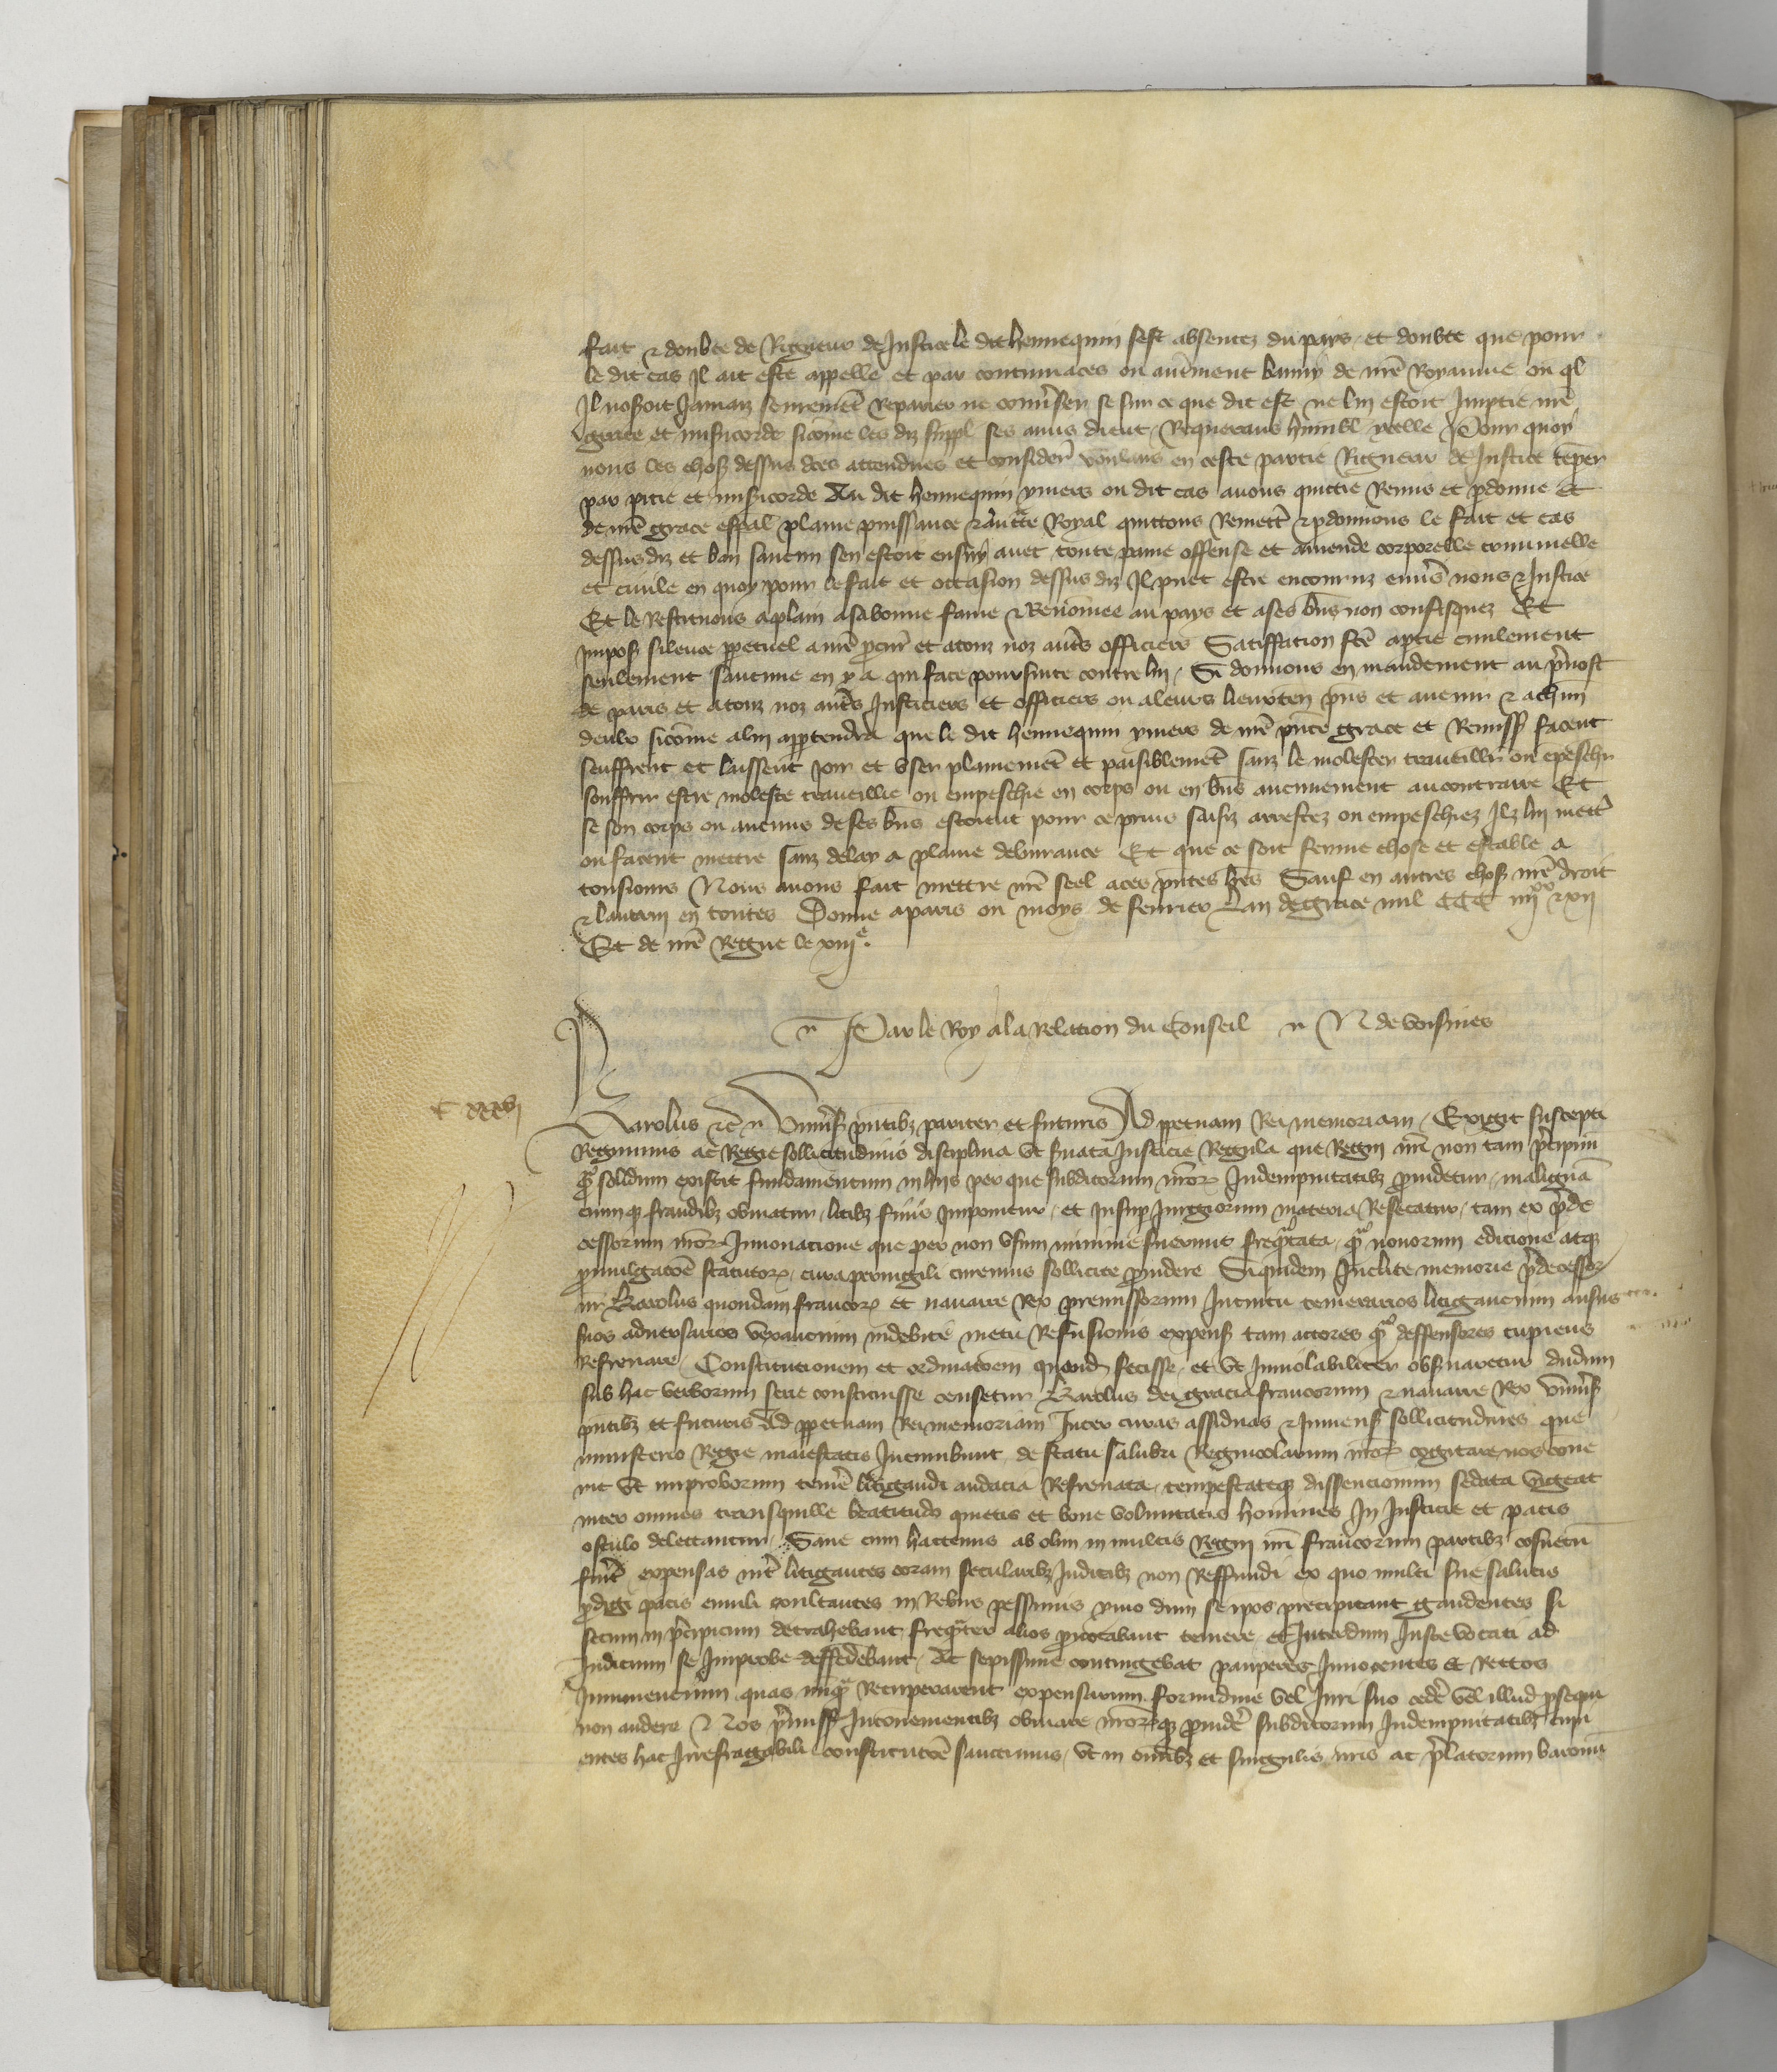 fait & doubte de Rigueur de Justice le dit hennequin sest absentez du pays et doubte que pour
le dit cas Il ait este appelle et par contumaces ou autrement banny de nre Royaume ou ql
Il noseroit Jamaiz seurement Reparier ne converser se sur ce que dit est ne lui estoit Impartie nre
grace et misericorde sicome les diz suppl ses amis dient Requerans humbl ycelle Pour quoy
nous les choses dessus dces attendues et consider voulans en ceste partie Rigueur de Justice temper
par pitie et misericorde Au dit hennequin ymers ou dit cas avons quittie Remis et pdonne Et
de nre grace espal plaine puissance & aucte Royal quittons Remett & pdonnons le fait et cas
dessus diz et ban saucun sen estoit ensuy avec toute paine offense et amende corporelle criminelle
et civile en quoy pour le fait et occasion dessus diz Il puet estre encouruz envers nous & Justice
Et le Restituons aplain asabonne fame & Renommee au pays et ases bns non confisquez Et
imposs silence ppetuel a nre pcur et atouz noz auts officiers Satiffation fce aptie civilement
seulement saucune en y a qui face poursuite contre lui Si donnons en mandement au pvost
de paris et atouz noz auts Justiciers et officiers ou aleurs lieuxten pns et avenir & achun
deulx sicome alui appartendra que le dit hennequin ymers de nre pnte grace et Remiss facent
seuffrent et laissent joir et user plainement et paisiblement sanz le molester traveillier ou epeschr
souffrir estre moleste traveillie ou empeschie en corps ou en bns aucunement aucontraire Et
se son corps ou aucuns de ses bns estoient pour ce prins saisiz arrestez ou empeschiez Ilz lui mett
ou facent mettre sanz delay a plaine delivrance Et que ce soit ferme chose et estable a
tousjours Nous avons fait mettre nre seel aces pntes lres Sauf en autres choses nre droit
& lautrui en toutes Donne aparis ou moys de fevrier Lan de grace mil CCC iiijxx & xij
Et de nre Regne le xiije.
Par le Roy ala Relation du Conseil N de voisines
C xxxvj
Karolus &c Univers pntibz pariter et futuris Ad ppetuam Rei memoriam Exigit suscepti
Regiminis ac Regie sollicitudinis disciplina ut suata Justicie Regula que Regni nri non tam pcipuu
qm solidum existit fundamentum in hiis per que subditorum nror Indempnitatibz providetur malignan
ciumqz fraudibz obviatur litibz finis Imponitur et Insup Jurgiorum materia Resecatur tam ex pde
cessorum nror Innovacione que per non usum minime fuerunt frequentata qm novorum edicione atqz
pmulgacoe statutor cura pervigili curemus sollicite providere Siquidem Inclite memorie pdecessor
nr Karolus quondam francor et navarre Rex premissorum Intuitu temerarios litigancium ausus
suos adversarios vexancium indebite metu Refusionis expens tam actores qm deffensores cupiens
Refrenare Constitutionem et ordinacoem quond fecisse et ut Inviolabiliter obsvaretur dudum
sub hac verborum serie constituisse censetur Karolus dei gracia francorum & navarre Rex Univers
pntibz et futuris Ad ppetuam Rei memoriam Inter curas assiduas & Immens sollicitudines que
ministerio Regie maiestatis Incumbunt de statu salubri Regnicolarum nror cogitare nos conve
nit Ut improborum temere litigandi audacia Refrenata tempestateqz dissencionum sedata vigeat
inter omnes tranquille beatitudo quietis et bone voluntatis homines In Justicie et pacis
osculo delectantur Sane cum hactenus ab olim in multis Regni nri francorum partibz cosuetu
fuit expensas inter litigantes coram secularibz Judicibz non Reffundi ex quo multi sue salutis
pdigi pacis emuli exultantes in Rebus pessimis ymo dum se ipos precipitant gaudentes si
secum in pcipicium detrahebant frequenter alios provocabant temere et Interdum Juste vocati ad
Judicium se Improbe deffendebant Ac sepissime contingebat pauperes Innocentes et Rectos
Imminencium quas nuqz Recuperarent expensarum formidine vel Juri suo ceder vel illud psequi
non audere & Nos pmiss Inconvenientibz obviare nrorqz provider subditorum Indempnitatibz cupi
entes hac Irrefragabili constitucoe sanctimus ut in omibz et singulis nris ac platorum baronu